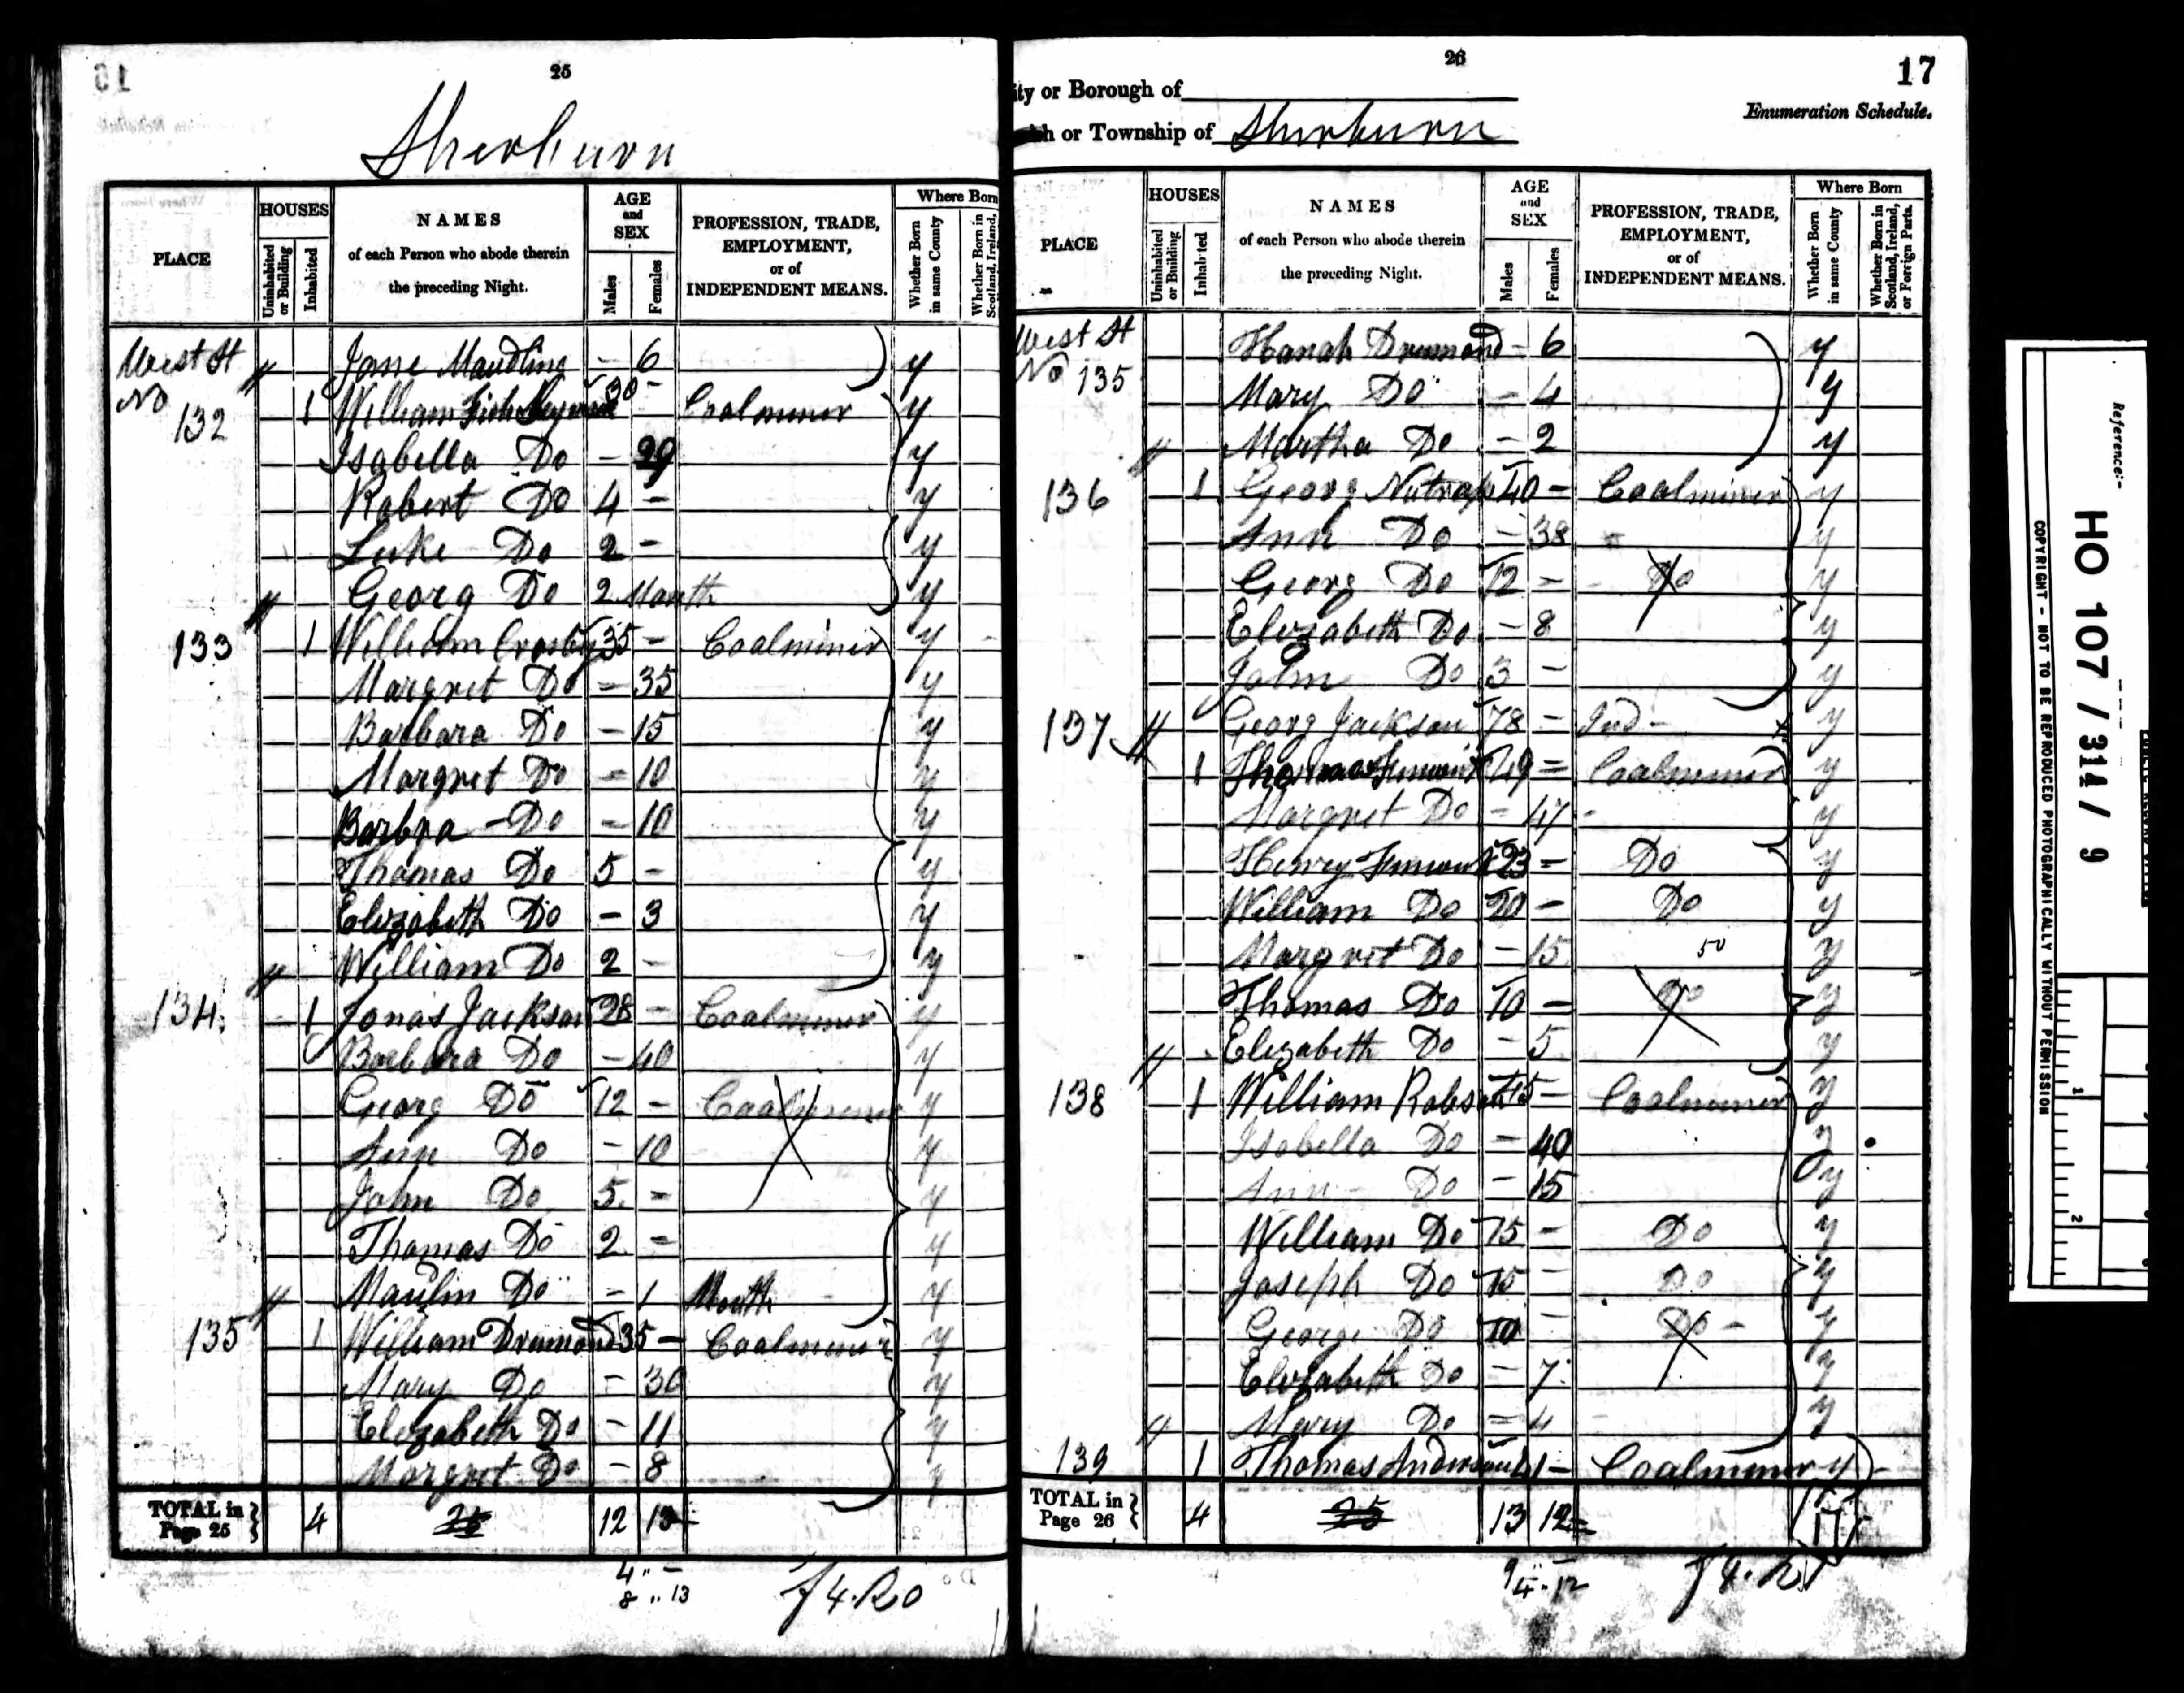 25
Sherburn
PLACE
HOUSES
Uninhabited or Building
Inhabited
NAMES
of each Person who abode therein
the preceding Night.
AGE
and
SEX
Males
Females
PROFESSION, TRADE,
EMPLOYMENT,
or of
INDEPENDENT MEANS.
Where Born
Whether Born in same County
Whether Born in Scotland, Ireland,
West St Jane Maudling - 6 y
No 132 1 William 30 - Coalminer y
Isabella Do - 29 y
Robert Do 4 - y
Luke Do 2 - y
Georg Do 2 Month y
133 1 William Crosby 35 - Coalminer y
Margret Do - 35 y
Barbara Do - 15 y
Margret Do - 10 y
Barbra - Do - 10 y
Thomas Do 5 - y
Elizabeth Do - 3 y
William Do 2 - y
134 1 Jonas Jackson 28 - Coalminer y
Barbara Do - 40 y
Georg Do 12 - Coalminer y
Ann Do - 10 y
John Do 5 - y
Thomas Do 2 - y
Maulin Do - 1 Month y
135 1 William Drumond 35 - Coalminer y
Mary Do - 30 y
Elizabeth Do - 11 y
Margret Do - 8 y
TOTAL in Page 25 4 25 12 13
4 -
8 .. 13
26
17
ity or Borough of
Enumeration Schedule.
or Township of Sherburn
PLACE
HOUSES
Uninhabited or Building
Inhabited
NAMES
of each Person who abode therein
the preceding Night.
AGE
and
SEX
Males
Females
PROFESSION, TRADE,
EMPLOYMENT,
or of
INDEPENDENT MEANS.
Where Born
Whether Born in same County
Whether Born in Scotland, Ireland, or Foreign Parts.
West St Hanah Drumond - 6 y
No 135 Mary Do - 4 y
Martha Do - 2 y
136 1 Georg 40 - Coalminer y
Ann Do - 38 y
Georg Do 12 - Do y
Elizabeth Do - 8 y
John Do 3 - y
137 Georg Jackson 78 - Ind - y
1 Thomas Fenwick 49 - Coalminer y
Margret Do - 47 y
Henry Fenwick 23 - Do y
William Do 20 - Do y
Margret Do - 15 y
Thomas Do 10 - Do y
Elizabeth Do - 5 y
138 1 William Robson 45 - Coalminer y
Isabella Do - 40 y
Ann - Do - 15 y
William Do 15 - Do y
Joseph Do 15 - Do y
George Do 10 - Do - y
Elizabeth Do - 7 y
Mary Do - 4 y
139 1 Thomas Anderson 41 - Coalminer y
TOTAL in Page 26 4 25 13 12
Reference:-
HO 107 / 314 / 9
COPYRIGHT - NOT TO BE REPRODUCED PHOTOGRAPHICALLY WITHOUT PERMISSION
1
2